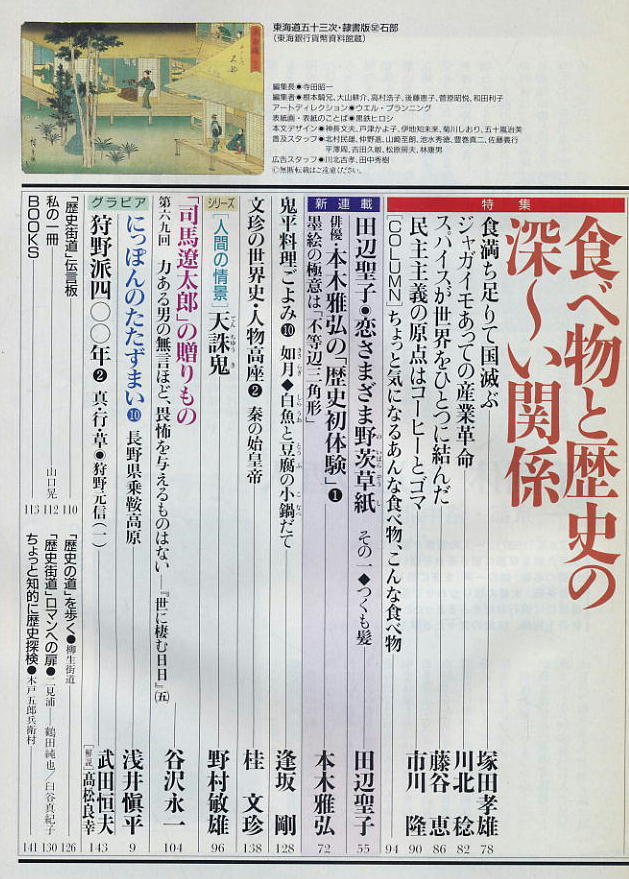 東海道五十三次・隷書版 石部
(東海銀行貨幣資料館蔵)
編集長●寺田昭一
編集者●根本騎兄、大山耕介、高村浩子、後藤恵子、菅原昭悦、和田利子
アートディレクション●ウエル・プランニング
表紙画・表紙のことば●黒鉄ヒロシ
本文デザイン●神長文夫、戸津かよ子、伊地知未来、菊川しおり、五十嵐治美
普及スタッフ●北村民雄、仲野進、山﨑至朗、池水秀徳、豊巻真二、佐藤義行
平澤周、吉田久敏、松原周夫、林康男
広告スタッフ●川北吉孝、田中秀樹
©無断転載はご遠慮ください。
特集
食べ物と歴史の
深〜い関係
食満ち足りて国滅ぶ 塚田孝雄 78
ジャガイモあっての産業革命 川北 稔 82
スパイスが世界をひとつに結んだ 藤谷 恵 86
民主主義の原点はコーヒーとゴマ 市川 隆 90
[COLUMN]ちょっと気になるあんな食べ物、こんな食べ物 94
新連載
田辺聖子●恋さまざま野茨草紙 その一◆つくも髪 田辺聖子 55
俳優・本木雅弘の「歴史初体験」❶ 本木雅弘 72
墨絵の極意は「不等辺三角形」
鬼平料理ごよみ❿ 如月◆白魚と豆腐の小鍋だて 逢坂 剛 128
文珍の世界史・人物高座❷ 秦の始皇帝 桂 文珍 138
シリーズ
[人間の情景]天誅鬼 野村敏雄 96
「司馬遼太郎」の贈りもの
第六九回 力ある男の無言ほど、畏怖を与えるものはない―『世に棲む日日』(五) 谷沢永一 104
グラビア
にっぽんのたたずまい❿ 長野県乗鞍高原 浅井愼平 9
狩野派四〇〇年❷ 真・行・草●狩野元信(一) 武田恒夫 [解説]髙松良幸 143
「歴史街道」伝言板 110
私の一冊 山口晃 112
BOOKS 113
「歴史の道」を歩く●柳生街道 126
「歴史街道」ロマンへの扉●二見浦 鶴田純也/臼谷真紀子 130
ちょっと知的に歴史探検●木戸五郎兵衛村 141